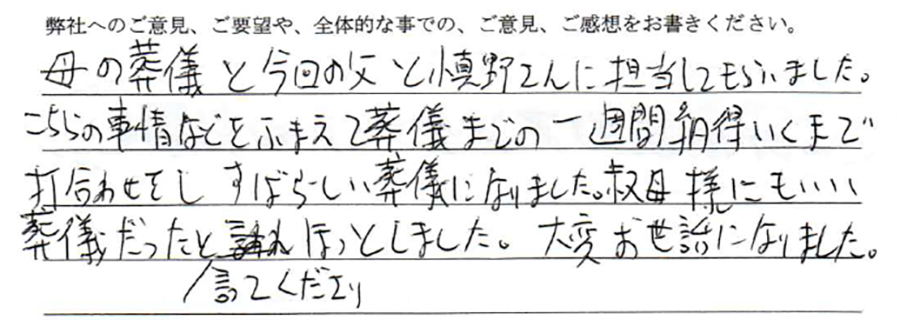 弊社へのご意見、ご要望や、全体的な事での、ご意見、ご感想をお書きください。
母の葬儀と今回の父と慎野さんに担当してもらいました。
こちらの事情などをふまえて葬儀までの一週間納得いくまで
打合わせをし すばらしい葬儀になりました。叔母様にもいい
葬儀だったと ほっとしました。 大変お世話になりました。
言ってくださり